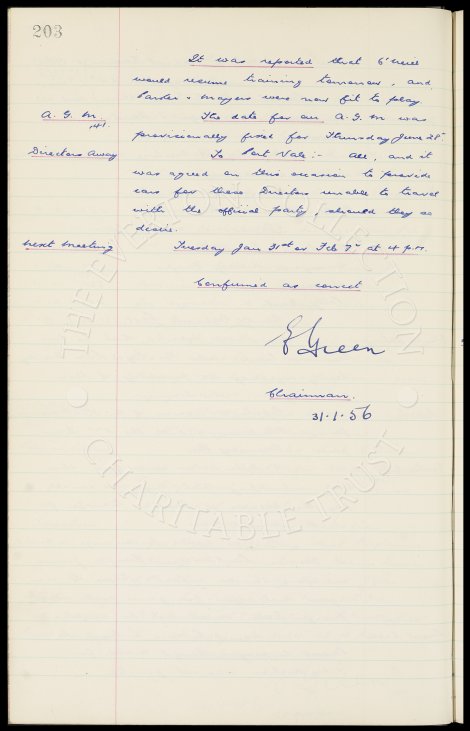 203
It was reported that O'Neill
would resume training tomorrow, and
Parker & Mayers were now fit to play.
A. G. M. The date for our A.G.M. was
141.
provisionally fixed for Thursday June
Directors Away To Port Vale :- All, and it
was agreed on this occasion to provide
cars for those Directors unable to travel
with the official party, should they so
desire.
Next Meeting Tuesday Jan 31st or Feb 7th at 4 p.m.
Confirmed as correct
E Green
Chairman.
31.1.56
THE EVERTON COLLECTION
CHARITABLE TRUST